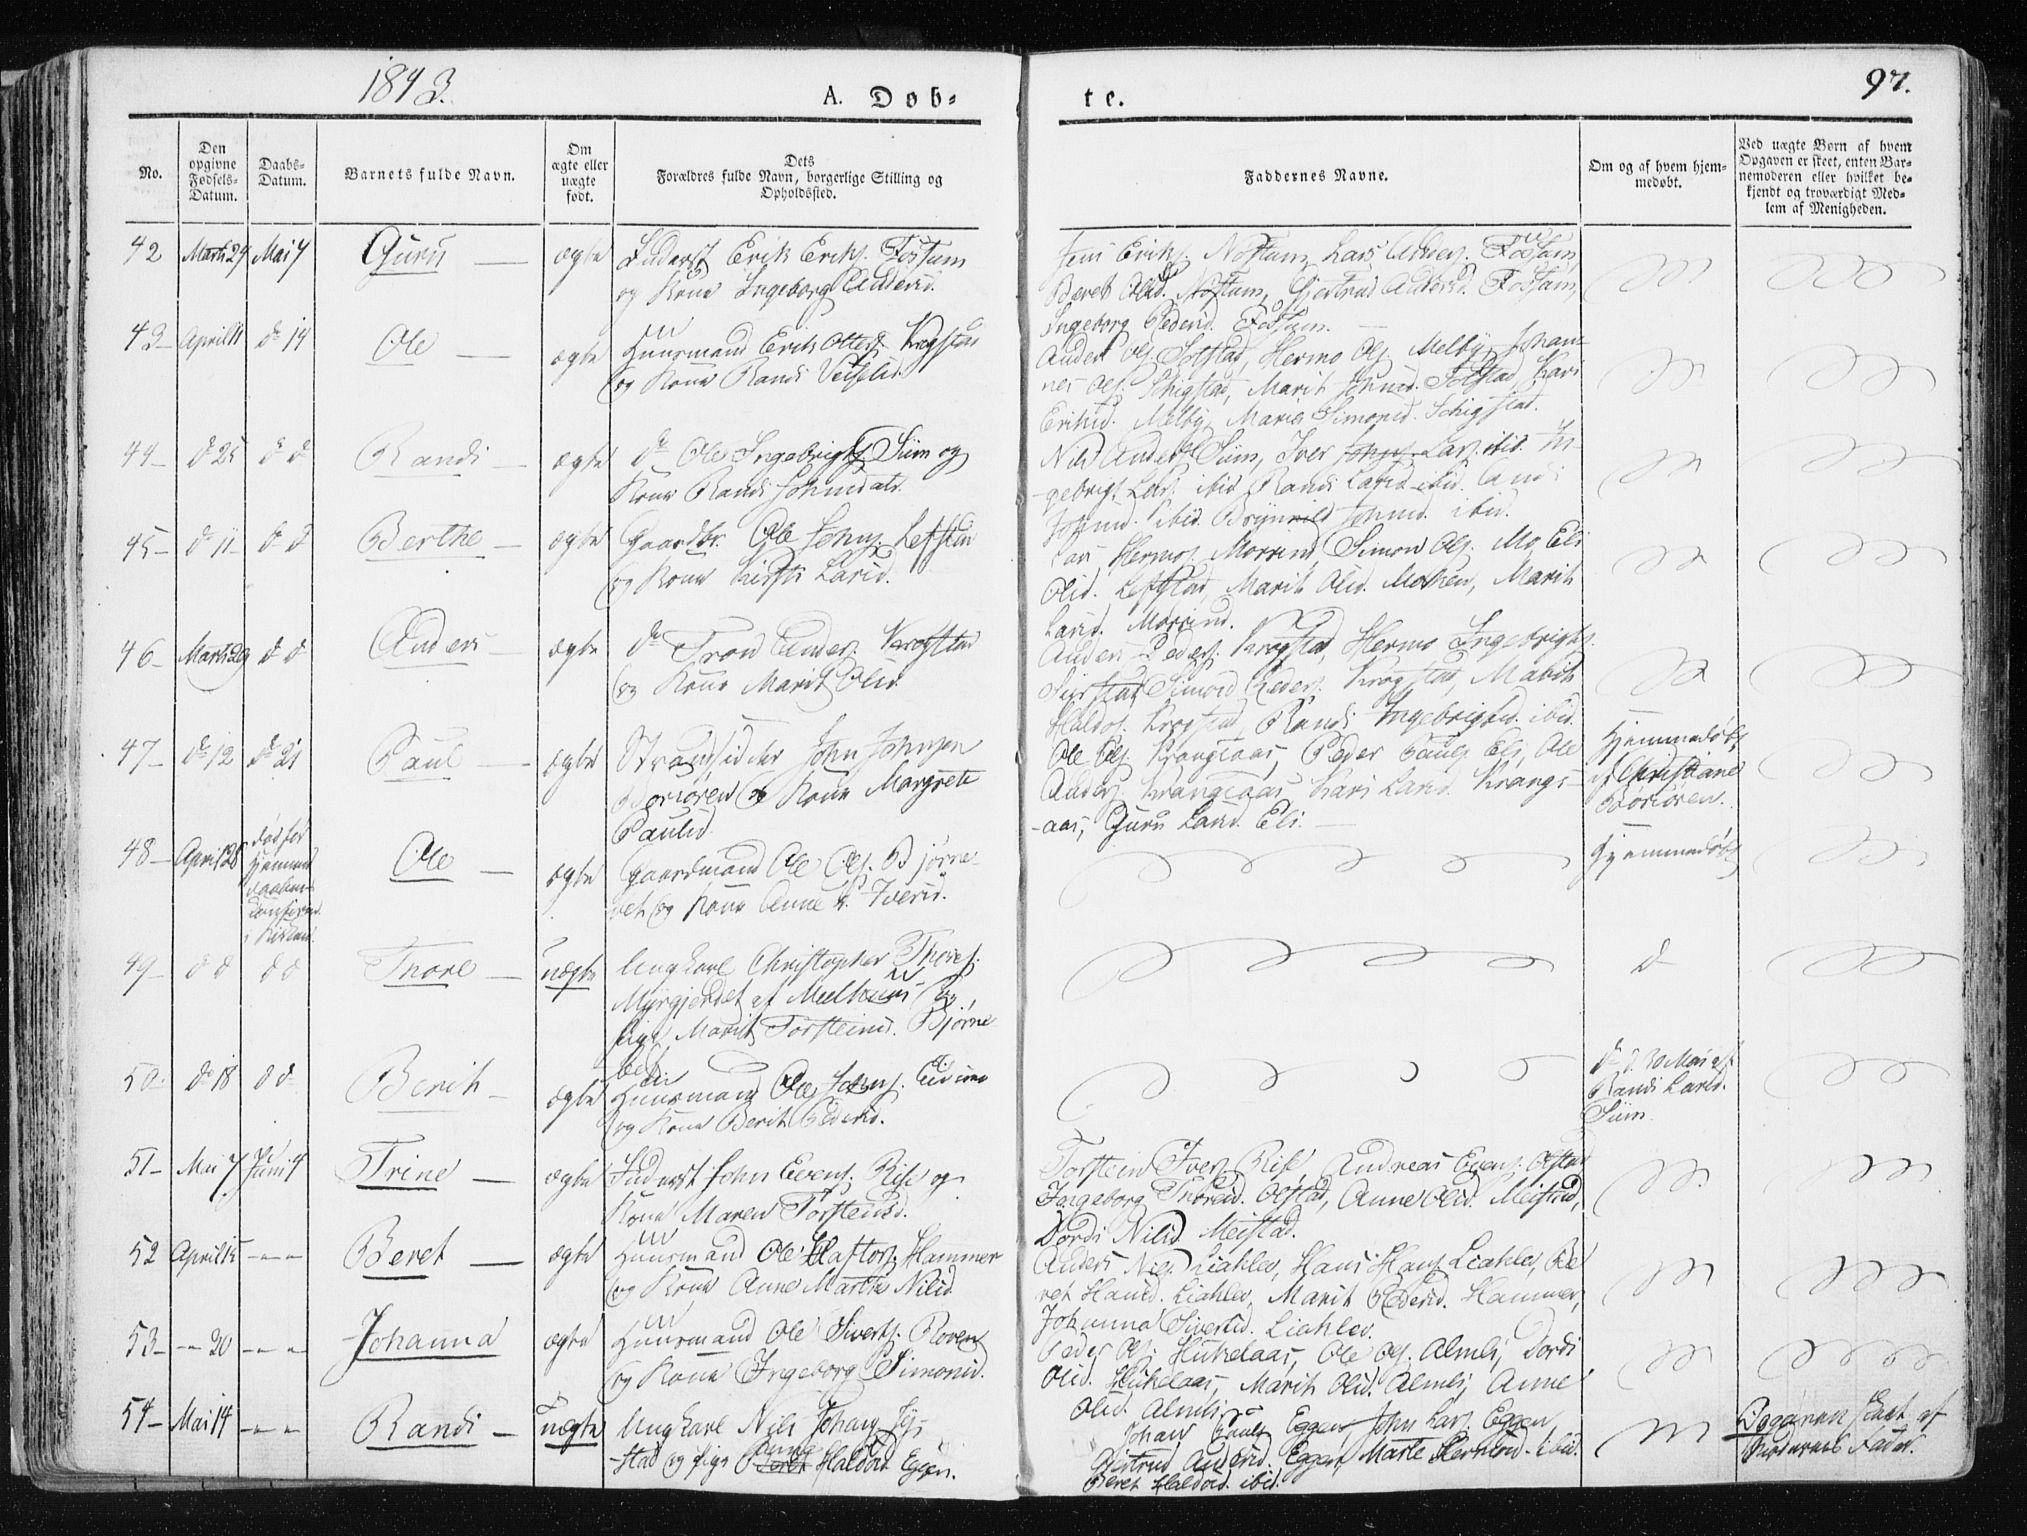 1843.
A. Døb=
te.
97.
No.
Den opgivne Fødsels-Datum.
Daabs-Datum.
Barnets fulde Navn.
Om ægte eller uægte født.
Dets Forældres fulde Navn, borgerlige Stilling og Opholdssted.
Faddernes Navne.
Om og af hvem hjemmedøbt.
Ved uægte Børn af hvem Opgaven er skeet, enten Barnemoderen eller hvilket bekjendt og troværdigt Medlem af Menigheden.
42 Marts 29 Mai 7 Guru — ægte Inderst Erik Eriks. Fossum
og Kone Ingeborg Andersd.
Jens Eriks. Nostum, Lars Anders. Fossum,
Beret Olsd. Nostum, Gjertrud Andersd. Fossum,
Ingeborg Pedersd. Fossum.
43 April 11 do 14 Ole — ægte Huusmand Erik Olsen Krogstad
og Kone Randi
Anders Ols. Solstad, Hermo Ols. Melby, Johan-
nes Ols. Skigstad, Marit Johnsd. Solstad, Kari
Eriksd. Melby, Marie Simonsd. Skigstad.
44 — d 25 d d Randi — ægte do Ole Ingebrigts. Siim og
Kone Randi Johnsdatr.
Nils Anders. Siim, Iver Lars. ibid. In-
gebrigt Lars. ibid. Randi Larsd. ibid.
Johnsd. ibid. Brynild Johnsd. ibid.
45 — do 11 — d d Berthe — ægte Gaardbr. Ole Johns. Lefstad
og Kone Kirsti Larsd.
Lars Hermos. Morrind, Simon Ols. Mo, Eli
Olsd. Lefstad, Marit Olsd. Mohen, Marit
Larsd. Morrind.
46 — Marts 29 d d Anders — ægte do Tron Anders. Krogstad
og Kone Marit Olsd.
Anders Peders. Krogstad, Hermo Ingebrigts.
Simon Peders. Krogstad, Marit
Haldos. Krogstad, Randi Ingebrigtsd. ibid.
47 — do 12 do 21 Paul — ægte Strandsidder John Johnsen
Børsøren og Kone Margrete
Paulsd.
Ole Ols. Krangsaas, Peder Pauls. Eli, Ole
Anders. Krangsaas, Kari Larsd. Krangs-
-aas, Guru Larsd. Eli. —
Hjemmedøbt
af Christiane
Børsøren.
48 — April 28 død før
Hjemme
daaben
i Kirken
Ole — ægte Gaardmand Ole Ols. Bjørne-
bet og Kone Anne Iversd.
Hjemmedøbt
49 — d d d d Thore — uægte Ungkarl Christopher Thores.
Myrgjerdet af Meelhuus og
Pige Marit Torsteinsd. Bjørne
bet
d
50. do 18 d d Berit — ægte Huusmand Ole Johns.
og Kone Berit Pedersd.
do d. 30 Mai af
Randi Larsd.
Siim.
51 — Mai 7 Juni 4 Trine — ægte Inderst John Evens. Rise og
Kone Maren Torsteinsd.
Torstein Ivers. Rise, Andreas Evens. Olstad
Ingeborg Thoresd. Olstad, Anne Olsd. Meistad,
Dordi Nilsd. Meistad.
52 April 15 — — — Beret — ægte Huusmand Ole Haftors. Hammer
og Kone Anne Marthe Nilsd.
Anders Niels. Liahlev, Hans Hans. Liahlev, Be
ret Hansd. Liahlev, Marit Pedersd. Hammer,
Johanna Sivertsd. Liahlev.
53 — — 20 — — — Johanna ægte Huusmand Ole Siverts. Roven
og Kone Ingeborg Simonsd.
Peder Ols. Hukelaas, Ole Ols. Almli, Dordi
Olsd. Hukelaas, Marit Olsd. Almli, Anne
Olsd. Almli.
54 — Mai 14 — — — Randi — uægte Ungkarl Nils Johans.
stad og Pige Anne Haldosd. Eggen.
Johan Pauls. Eggen, John Lars. Eggen,
Gjertrud Andersd. Eggen, Marte ibid.
Beret Haldosd. ibid.
Opgaven skeet af
Moderens Fader.